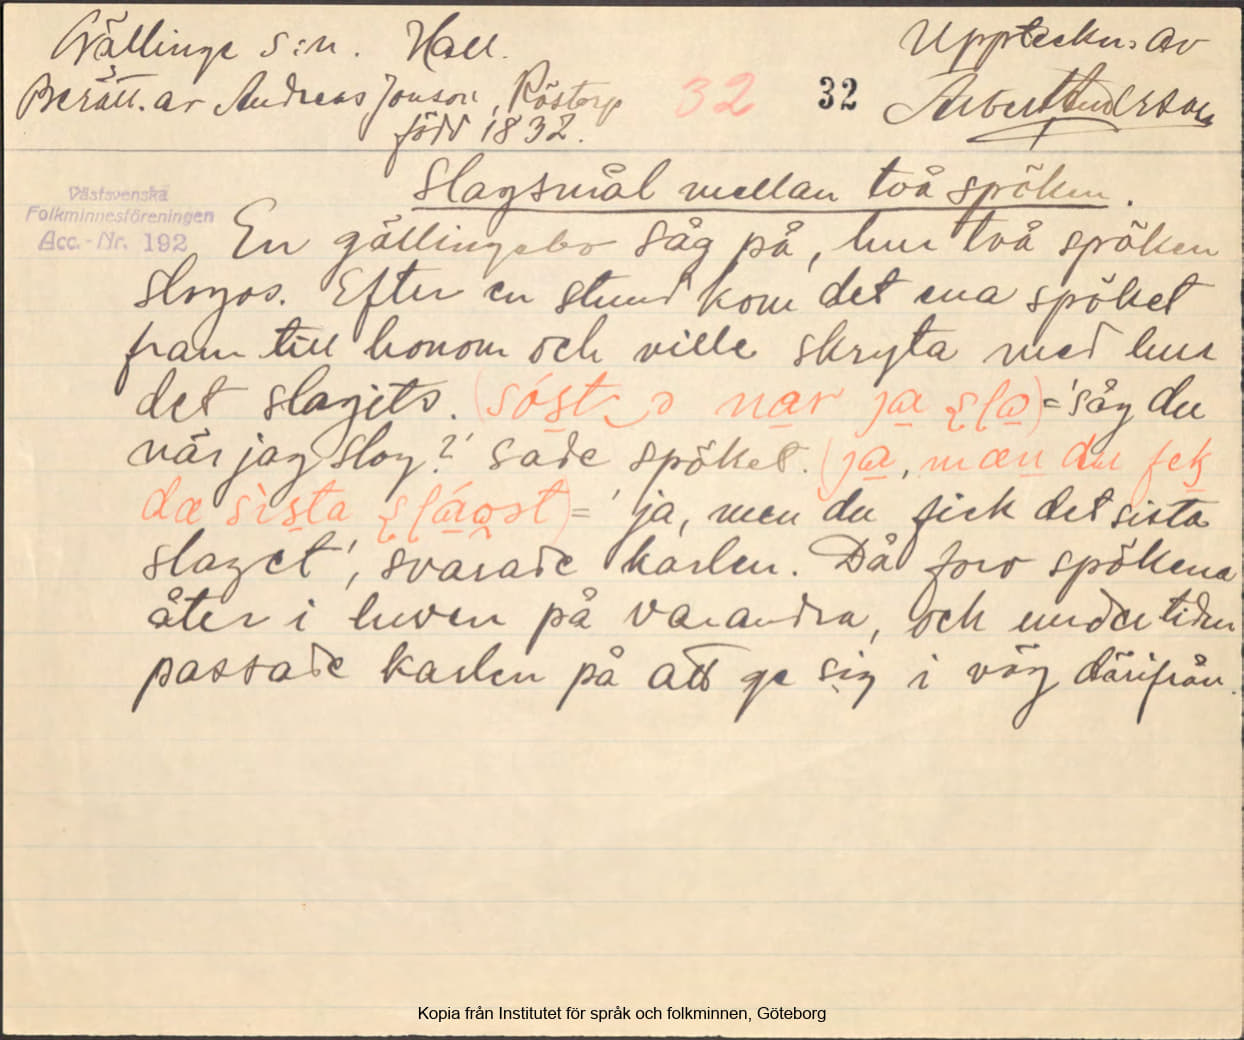 Gällinge s:n. Hall. Uppteckn. av
Berätt. av Andreas Jonson, Röstorp 32 32 Albert Anderson
född 1832.
Slagsmål mellan två spöken.
Västsvenska
Folkminnesföreningen
Acc.-Nr. 192
En gällingebo såg på, hur två spöken
slogos. Efter en stund kom det ena spöket
fram till honom och ville skryta med hur
det slagits. = 'såg du
när jag slog?' sade spöket. (ja, mæn du fek
dæ sista = 'ja, men du fick det sista
slaget', svarade karlen. Då foro spökena
åter i luven på varandra, och under tiden
passade karlen på att ge sig i väg därifrån.
Kopia från Institutet för språk och folkminnen, Göteborg